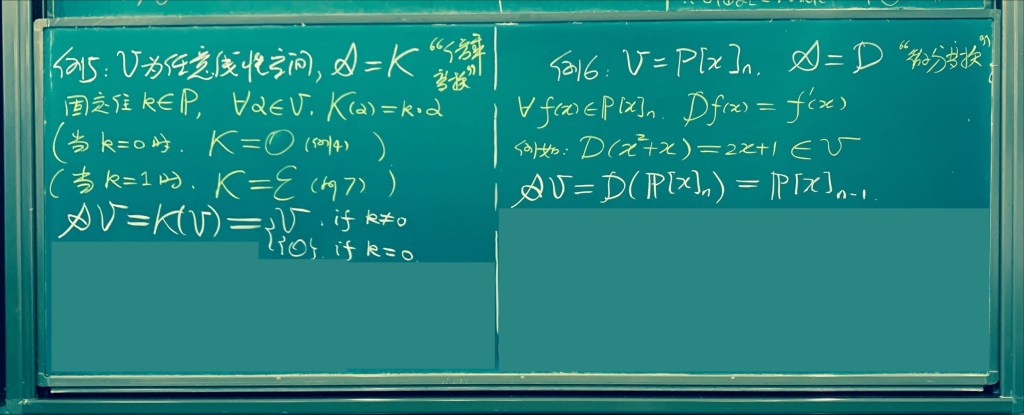 例5: V为任意线性空间, 𝒜=K "倍乘变换"
固定住 k∈P, ∀α∈V. K(α)=k·α
(当 k=0时. K=O (例4) )
(当 k=1时. K=ℰ (例7) )
𝒜V=K(V)={V. if k≠0
{0}. if k=0
例6: V=P[x]ₙ. 𝒜=D "微分变换"
∀f(x)∈P[x]ₙ. Df(x)=f'(x)
例如: D(x²+x)=2x+1∈V
𝒜V=D(P[x]ₙ)=P[x]ₙ₋₁.